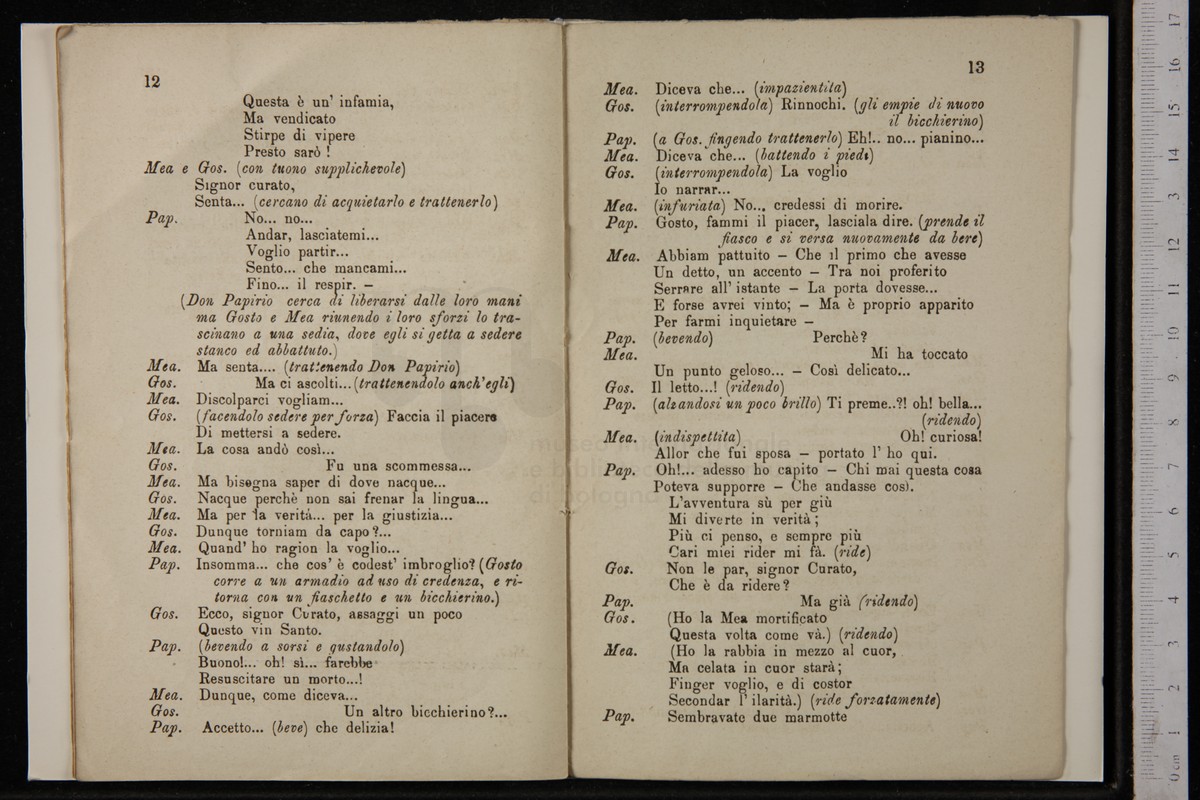 12
Questa è un' infamia,
Ma vendicato
Stirpe di vipere
Presto sarò !
Mea e Gos. (con tuono supplichevole)
Signor curato,
Senta... (cercano di acquietarlo e trattenerlo)
Pap. No... no...
Andar, lasciatemi...
Voglio partir...
Sento... che mancami...
Fino... il respir. —
(Don Papirio cerca di liberarsi dalle loro mani
ma Gosto e Mea riunendo i loro sforzi lo tra-
scinano a una sedia, dove egli si getta a sedere
stanco ed abbattuto.)
Mea. Ma senta.... (trattenendo Don Papirio)
Gos. Ma ci ascolti... (trattenendolo anch'egli)
Mea. Discolparci vogliam...
Gos. (facendolo sedere per forza) Faccia il piacere
Di mettersi a sedere.
Mea. La cosa andò così...
Gos. Fu una scommessa...
Mea. Ma bisogna saper di dove nacque...
Gos. Nacque perchè non sai frenar la lingua...
Mea. Ma per la verità... per la giustizia...
Gos. Dunque torniam da capo?...
Mea. Quand' ho ragion la voglio...
Pap. Insomma... che cos' è codest' imbroglio? (Gosto
corre a un armadio ad uso di credenza, e ri-
torna con un fiaschetto e un bicchierino.)
Gos. Ecco, signor Curato, assaggi un poco
Questo vin Santo.
Pap. (bevendo a sorsi e gustandolo)
Buono!... oh! sì... farebbe
Resuscitare un morto...!
Mea. Dunque, come diceva...
Gos. Un altro bicchierino?...
Pap. Accetto... (beve) che delizia!
13
Mea. Diceva che... (impazientita)
Gos. (interrompendola) Rinnochi. (gli empie di nuovo
il bicchierino)
Pap. (a Gos. fingendo trattenerlo) Eh!.. no... pianino...
Mea. Diceva che... (battendo i piedi)
Gos. (interrompendola) La voglio
Io narrar...
Mea. (infuriata) No... credessi di morire.
Pap. Gosto, fammi il piacer, lasciala dire. (prende il
fiasco e si versa nuovamente da bere)
Mea. Abbiam pattuito — Che il primo che avesse
Un detto, un accento — Tra noi proferito
Serrare all' istante — La porta dovesse...
E forse avrei vinto; — Ma è proprio apparito
Per farmi inquietare —
Pap. (bevendo) Perchè?
Mea. Mi ha toccato
Un punto geloso... — Così delicato...
Gos. Il letto...! (ridendo)
Pap. (alzandosi un poco brillo) Ti preme..?! oh! bella...
(ridendo)
Mea. (indispettita) Oh! curiosa!
Allor che fui sposa — portato l' ho qui.
Pap. Oh!... adesso ho capito — Chi mai questa cosa
Poteva supporre — Che andasse così.
L'avventura sù per giù
Mi diverte in verità;
Più ci penso, e sempre più
Cari miei rider mi fà. (ride)
Gos. Non le par, signor Curato,
Che è da ridere?
Pap. Ma già (ridendo)
Gos. (Ho la Mea mortificato
Questa volta come và.) (ridendo)
Mea. (Ho la rabbia in mezzo al cuor,
Ma celata in cuor starà;
Finger voglio, e di costor
Secondar l' ilarità.) (ride forzatamente)
Pap. Sembravate due marmotte